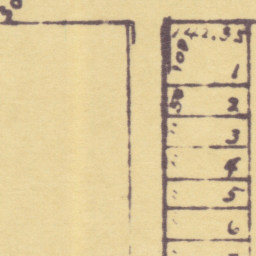 142.35
100 1
50 2
" 3
" 4
" 5
" 6